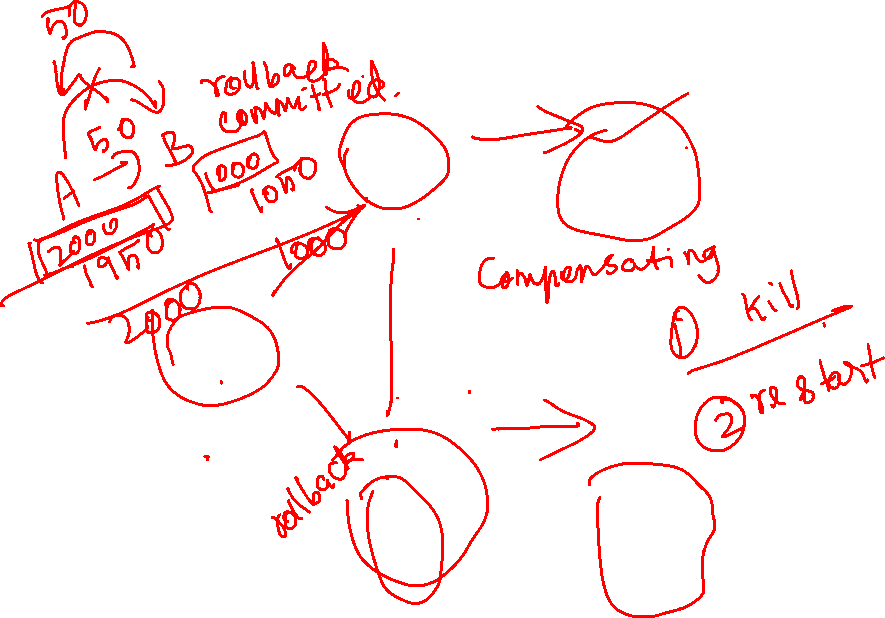 50
rollback
committed.
50
A → B
1000
1050
2000
1950
1000
2000
Compensating
① kill
② restart
rollback